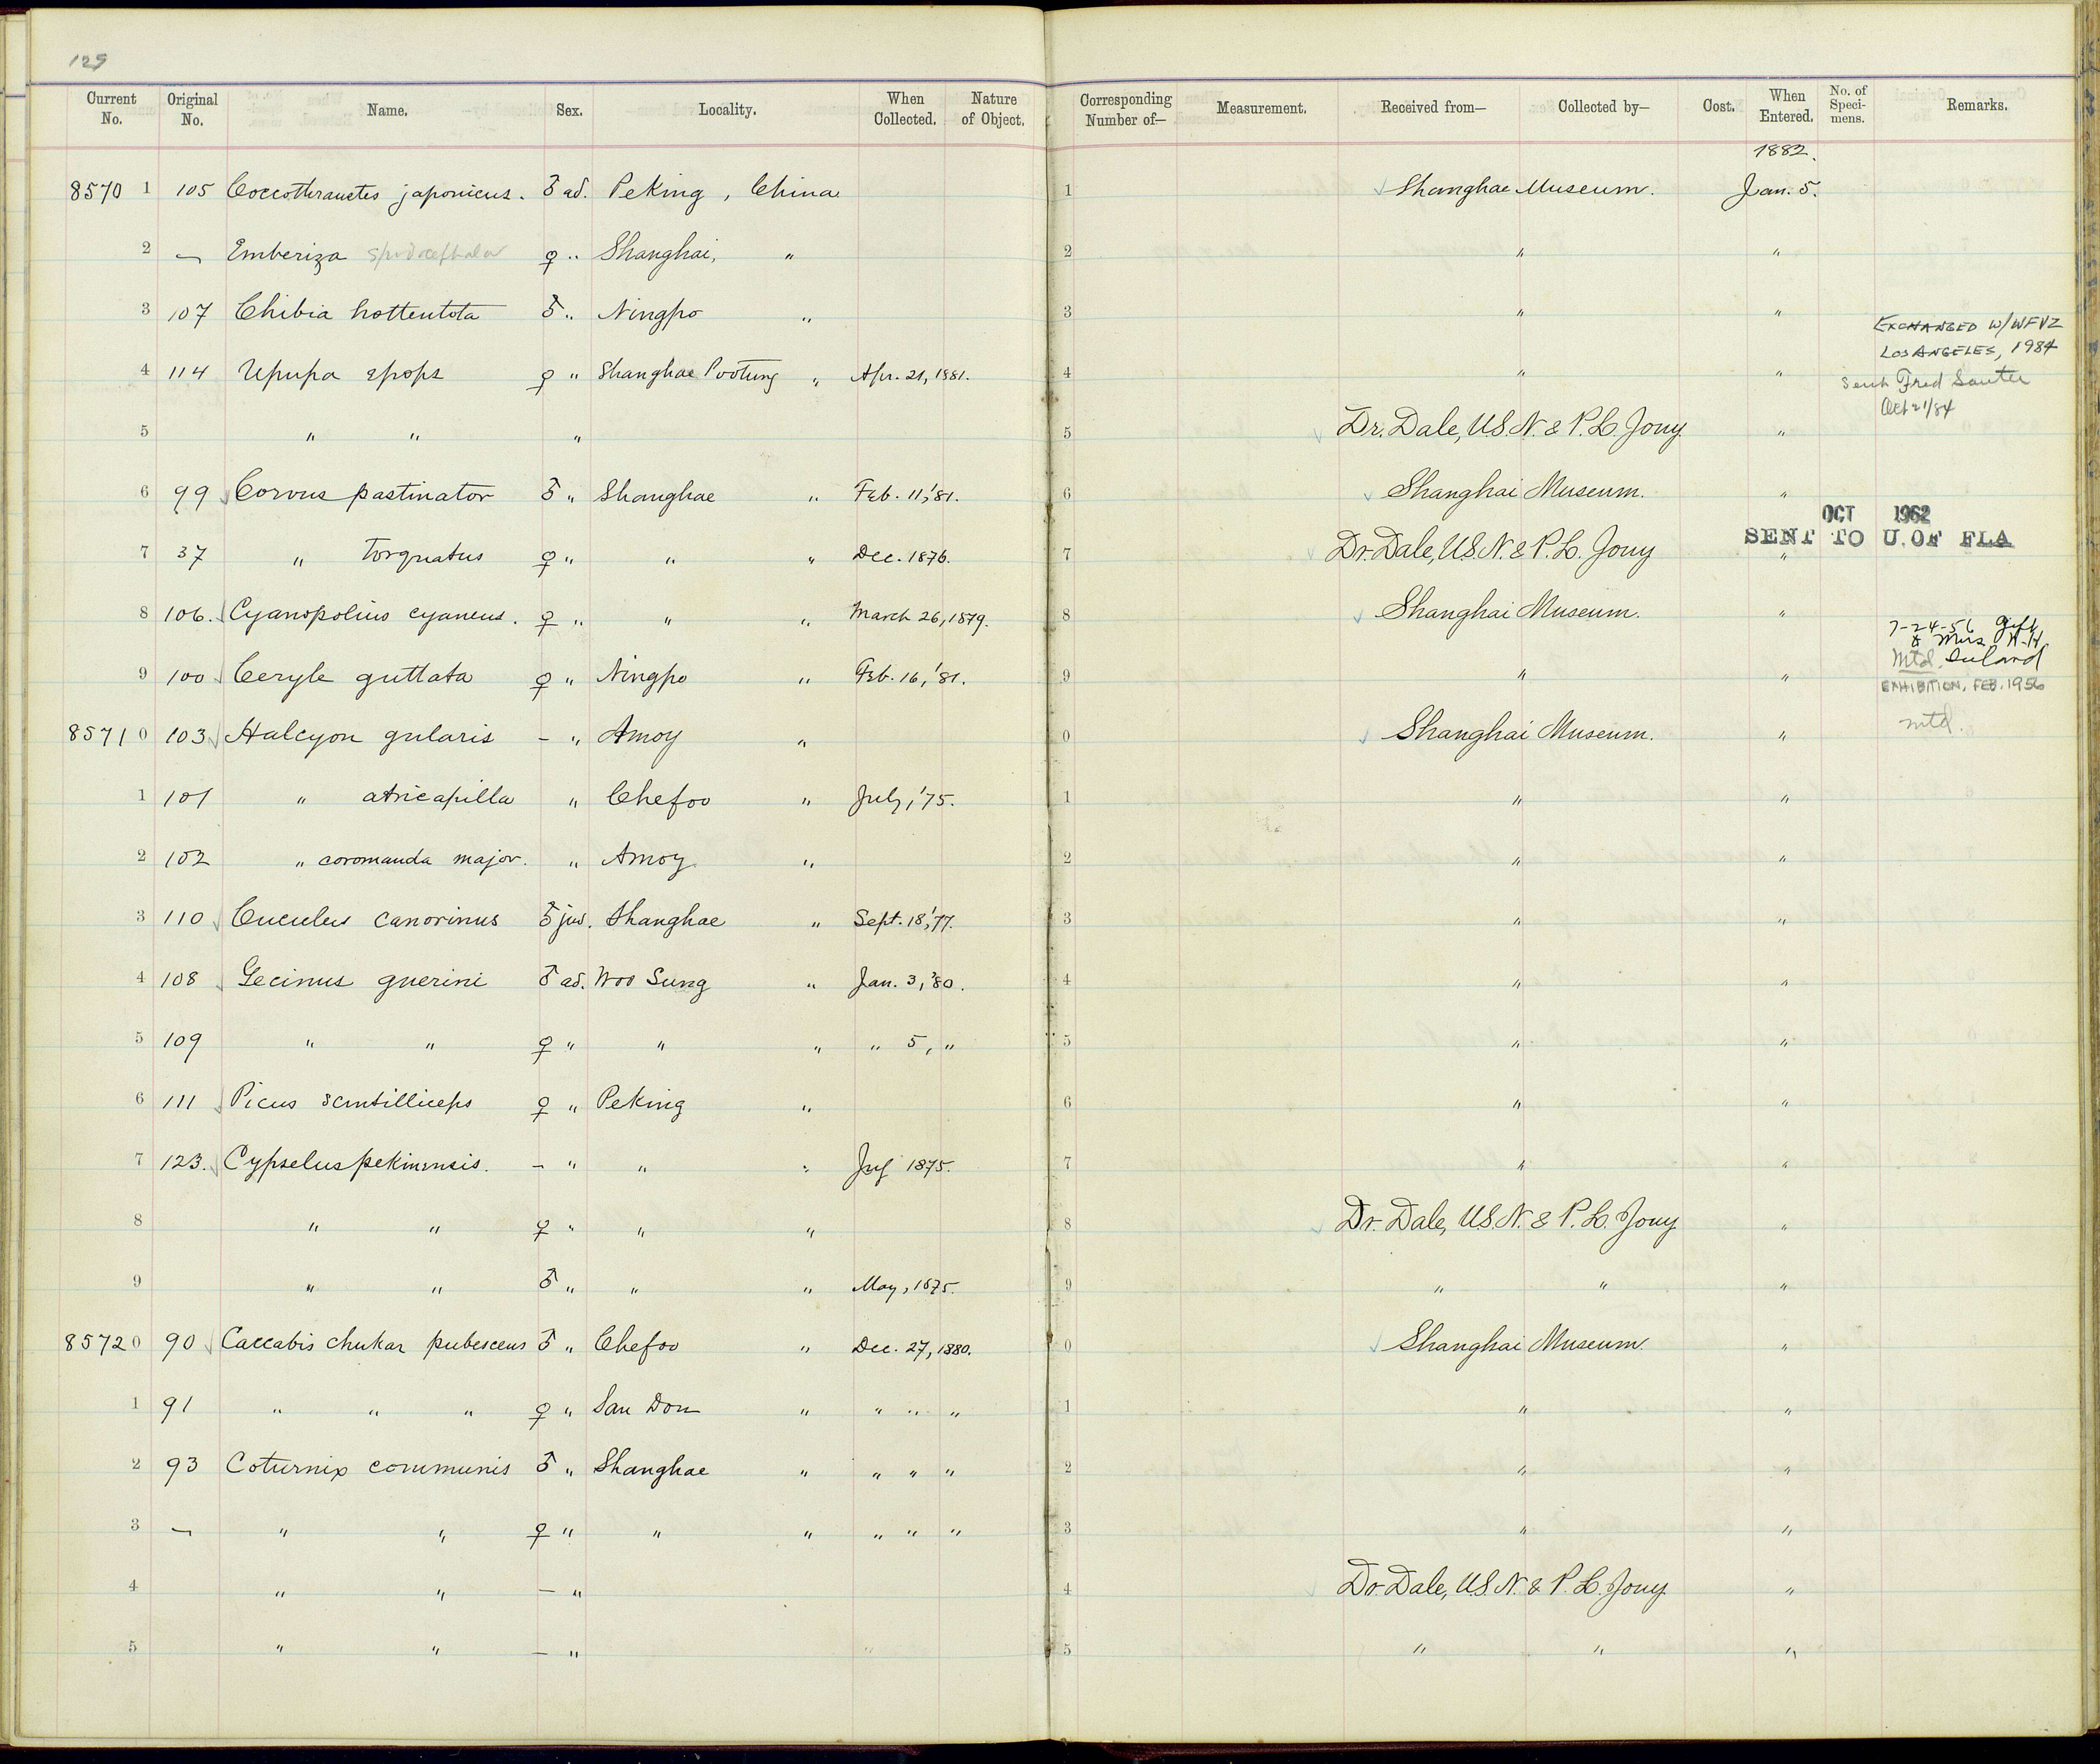 129
Current No. Original No. Name. Sex. Locality. When Collected. Nature of Object. Corresponding Number of— Measurement. Received from— Collected by— Cost. When Entered. No. of Specimens. Remarks.
1882.
8570 1 105 Coccothraustes japonicus. ♂ ad. Peking, China 1 Shanghae Museum. Jan. 5.
2 — Emberiza spodocephala ♀ " Shanghai, " 2 " "
3 107 Chibia hottentota ♂ " Ningpo " 3 " "
EXCHANGED W/ WFVZ
LOS ANGELES, 1984
4 114 Upupa epops ♀ " Shanghae Pootung " Apr. 21, 1881. 4 " "
Fred
Oct 21/84
5 " " " 5 Dr. Dale, U.S.N. & P. L. Jouy "
6 99 Corvus pastinator ♂ " Shanghae " Feb. 11, '81. 6 Shanghai Museum. "
OCT 1962
SENT TO U. OF FLA
7 37 " torquatus ♀ " " " Dec. 1876. 7 Dr. Dale, U.S.N. & P. L. Jouy "
8 106. Cyanopolius cyaneus. ♀ " " " March 26, 1879. 8 Shanghai Museum. "
7-24-56 Gift
Mrs
Mtd.
9 100 Ceryle guttata ♀ " Ningpo " Feb. 16, '81. 9 " "
EXHIBITION, FEB. 1956
8571 0 103 Halcyon gularis – " Amoy " 0 Shanghai Museum. " mtd.
1 101 " atricapilla " Chefoo " July, '75. 1 " "
2 102 " coromanda major. " Amoy " 2 " "
3 110 Cuculus canorinus ♂ juv. Shanghae " Sept. 18, '77. 3 " "
4 108 Gecinus guerini ♂ ad. Woo Sung " Jan. 3, '80. 4 " "
5 109 " " ♀ " " " " 5, " 5 " "
6 111 Picus scintilliceps ♀ " Peking " 6 " "
7 123. Cypselus pekinensis. – " " " July 1875. 7 " "
8 " " ♀ " " " 8 Dr. Dale, U.S.N. & P. L. Jouy "
9 " " ♂ " " " May, 1875. 9 " " "
8572 0 90 Caccabis chukar pubescens ♂ " Chefoo " Dec. 27, 1880. 0 Shanghai Museum. "
1 91 " " " ♀ " San Don " " " " 1 " "
2 93 Coturnix communis ♂ " Shanghae " " " " 2 " "
3 — " " ♀ " " " " " " 3 " "
4 " " – " 4 Dr. Dale, U.S.N. & P. L. Jouy "
5 " " – " 5 " " "